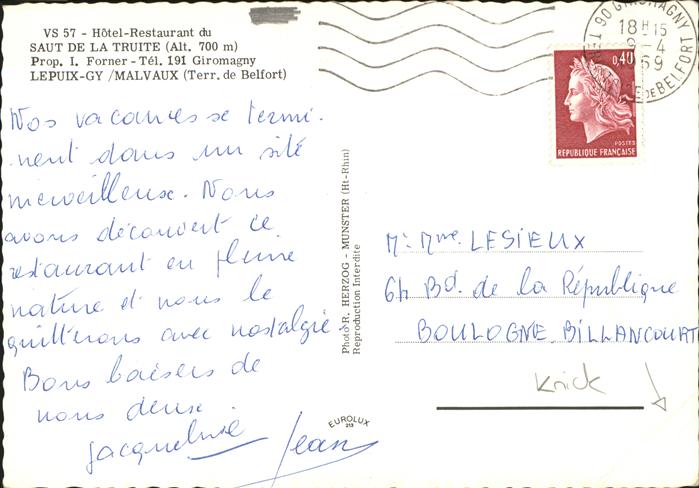 VS 57 - Hôtel-Restaurant du
SAUT DE LA TRUITE (Alt. 700 m)
Prop. I. Forner - Tél. 191 Giromagny
LEPUIX-GY / MALVAUX (Terr. de Belfort)
Nos vacances se termi-
nent dans un site
merveilleux. Nous
avons découvert ce
restaurant en pleine
nature et nous le
quitterons avec nostalgie
Bons baisers de
nous deux
Jacqueline
Jean
Photo R. HERZOG - MUNSTER (Ht-Rhin)
Reproduction Interdite
EUROLUX
90 GIROMAGNY
18 H 15
9-4
69
DE BELFORT
0,40
POSTES
REPUBLIQUE FRANÇAISE
Mr Mme LESIEUX
64 Bd. de la République
BOULOGNE BILLANCOURT
Knick